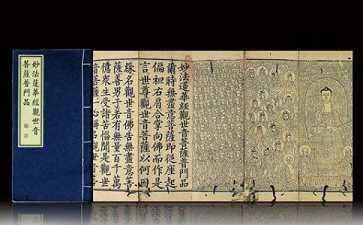 妙法蓮華經觀世音
菩薩普門品
妙法蓮華經觀世音菩薩普門品
爾時無盡意菩薩即從座起
偏袒右肩合掌向佛而作是
言世尊觀世音菩薩以何因
緣名觀世音佛告無盡意菩
薩善男子若有無量百千萬
億衆生受諸苦惱聞是觀世
音菩薩一心稱名